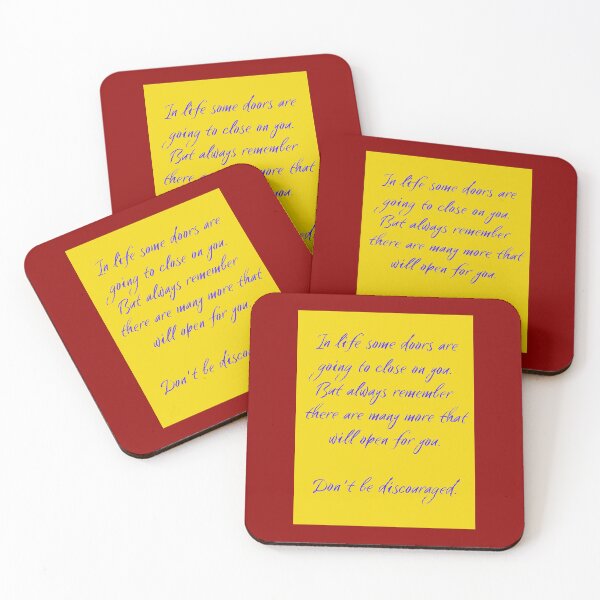 In life some doors are
going to close on you.
But always remember
there are more that
you.
In life some doors are
going to close on you.
But always remember
there are many more that
will open for you.
In life some doors are
going to close on you.
But always remember
there are many more that
will open for you.
Don't be
In life some doors are
going to close on you.
But always remember
there are many more that
will open for you.
Don't be discouraged.